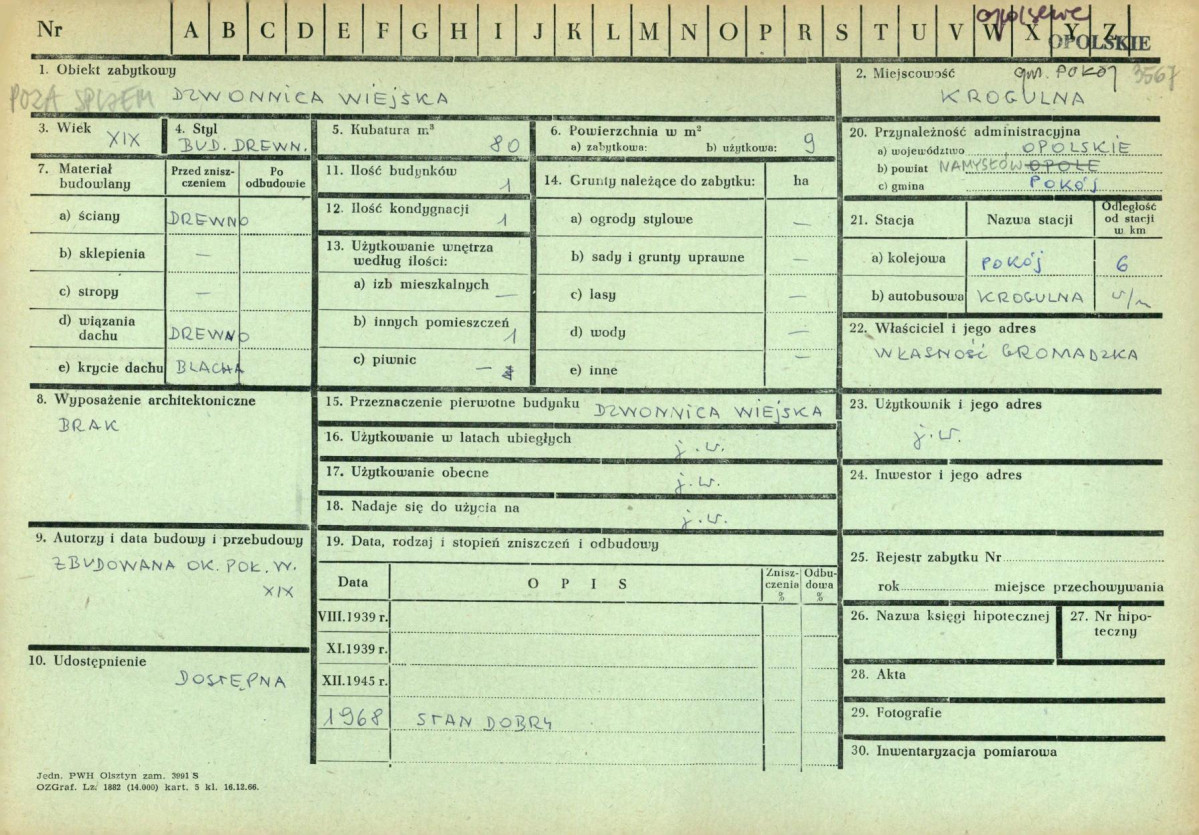 opolskie
Nr A B C D E F G H I J K L M N O P R S T U V W X Y Z
OPOLSKIE
1. Obiekt zabytkowy
POZA SPISEM DZWONNICA WIEJSKA
2. Miejscowość gm. POKÓJ 3567
KROGULNA
3. Wiek
XIX
4. Styl
BUD. DREWN.
5. Kubatura m³
80
6. Powierzchnia w m²
a) zabytkowa: b) użytkowa: 9
7. Materiał budowlany
Przed znisz-
czeniem
Po
odbudowie
a) ściany DREWNO
b) sklepienia —
c) stropy —
d) wiązania
dachu DREWNO
e) krycie dachu BLACHA
8. Wyposażenie architektoniczne
BRAK
9. Autorzy i data budowy i przebudowy
ZBUDOWANA OK. POŁ. W.
XIX
10. Udostępnienie
DOSTĘPNA
11. Ilość budynków
1
12. Ilość kondygnacji
1
13. Użytkowanie wnętrza
według ilości:
a) izb mieszkalnych —
b) innych pomieszczeń 1
c) piwnic —
14. Grunty należące do zabytku: ha
a) ogrody stylowe —
b) sady i grunty uprawne —
c) lasy —
d) wody —
e) inne —
15. Przeznaczenie pierwotne budynku DZWONNICA WIEJSKA
16. Użytkowanie w latach ubiegłych j.w.
17. Użytkowanie obecne j.w.
18. Nadaje się do użycia na j.w.
19. Data, rodzaj i stopień zniszczeń i odbudowy
Data O P I S
Znisz-
czenia
%
Odbu-
dowa
%
VIII.1939 r.
XI.1939 r.
XII.1945 r.
1968 STAN DOBRY
20. Przynależność administracyjna
a) województwo OPOLSKIE
b) powiat NAMYSŁÓW OPOLE
c) gmina POKÓJ
21. Stacja Nazwa stacji
Odległość
od stacji
w km
a) kolejowa POKÓJ 6
b) autobusowa KROGULNA w/m
22. Właściciel i jego adres
WŁASNOŚĆ GROMADZKA
23. Użytkownik i jego adres
j.w.
24. Inwestor i jego adres
25. Rejestr zabytku Nr
rok miejsce przechowywania
26. Nazwa księgi hipotecznej
27. Nr hipo-
teczny
28. Akta
29. Fotografie
30. Inwentaryzacja pomiarowa
Jedn. PWH Olsztyn zam. 3991 S
OZGraf. Lz. 1882 (14.000) kart. 5 kl. 16.12.66.